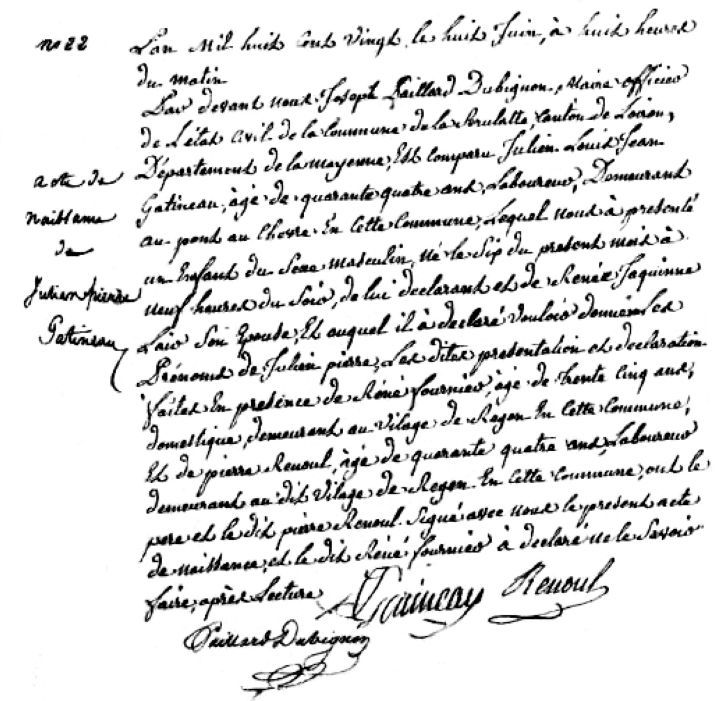 no 22
acte de
naissance
de
Julien pierre
Gatineau
L'an Mil huit Cent Vingt, le huit Juin, à huit heures
du matin
Par devant nous Joseph Paillard Dubignon, Maire officier
de L'état Civil de la Commune de la Brulatte, Canton de Loiron,
Département de la mayenne, Est Comparu Julien Louis Jean
Gatineau, âgé de quarante quatre ans, Laboureur, Demeurant
au pont au Chevre En Cette Commune, Lequel nous à présenté
un Enfant du Sexe Masculin, né le Six du présent mois à
neuf heures du Soir, de lui déclarant et de Renée Jaquinne
Lair Son Epouse, Et auquel il à déclaré Vouloir donner Les
Prénoms de Julien pierre, Les dites présentation et déclaration
faites En présence de Réné fournier, âgé de trente Cinq ans,
domestique, demeurant au Vilage de Regen En Cette Commune,
Et de pierre Renoul, âgé de quarante quatre ans, Laboureur
demeurant au dit Village de Regen En Cette Commune, ont le
pere et le dit pierre Renoul Signé avec nous le présent acte
de naissance, et le dit Réné fournier à déclaré ne le Savoir
faire, après Lecture
Renoul
Paillard Dubignon